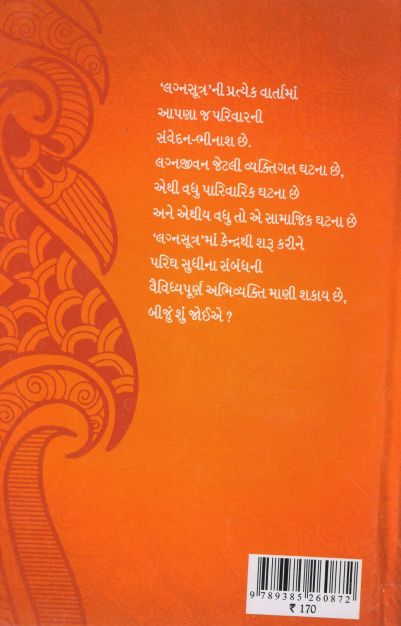 ‘લગ્નસૂત્ર’ની પ્રત્યેક વાર્તામાં
આપણા જ પરિવારની
સંવેદન-ભીનાશ છે.
લગ્નજીવન જેટલી વ્યક્તિગત ઘટના છે,
એથી વધુ પારિવારિક ઘટના છે
અને એથીય વધુ તો એ સામાજિક ઘટના છે
‘લગ્નસૂત્ર’માં કેન્દ્રથી શરૂ કરીને
પરિઘ સુધીના સંબંધની
વૈવિધ્યપૂર્ણ અભિવ્યક્તિ માણી શકાય છે,
બીજું શું જોઈએ ?
9 789385 260872
₹ 170